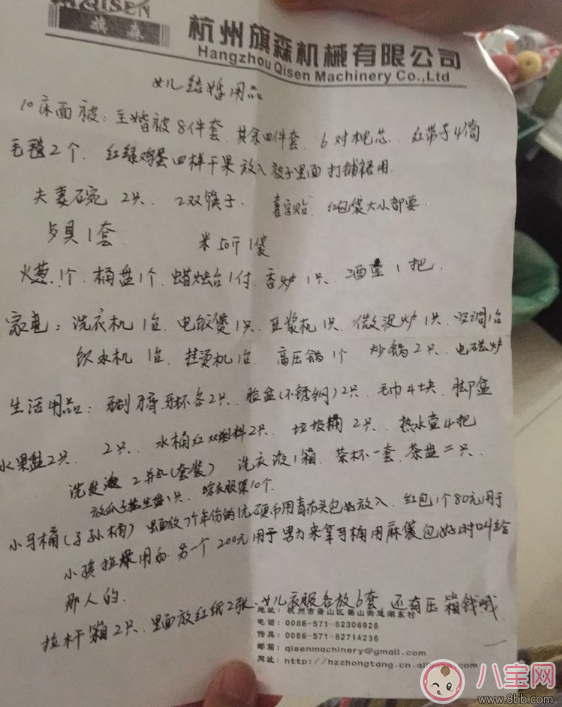 QISEN
旗森
杭州旗森机械有限公司
Hangzhou Qisen Machinery Co.,Ltd
女儿结婚用品
10床面被：主婚被8件套、其余四件套、6对枕芯、红带子4筒
毛毯2个、红绿鸡蛋四样干果放入被子里面打铺裙用
夫妻碗 2只、2双筷子、喜字贴 红包袋大小都要
1套、 米50斤1袋
火葱1个 桶盘1个、蜡烛台1付、香炉1只、酒壶1把、
家电：洗衣机1台、电饭煲1只、豆浆机1只、微波炉1只、空调1台
饮水机 1台、挂烫机1台 高压锅1个 炒锅2只、电磁炉
生活用品：牙刷牙膏牙杯各2只、脸盆(不锈钢)2只、毛巾4块、脚盆
2只、水桶红双塑料2只、垃圾桶2只、热水壶4把
水果盘2只
洗发液2瓶(套装) 洗衣液1箱、茶杯一套、茶盘二只、
放瓜子盘 1只、 衣服架10个
小马桶(子孙桶) 里面放7个年份的1元硬币用青布头包好放入、红包1个80元用于
小孩拉 用的 另一个200元用于男方来拿马桶用麻袋包好时叫 给
那人的.
拉杆箱2只、里面放红纸2张、女儿衣服各放6套 还有压箱钱哦
地址：杭州市萧山区 山街道湖东村
电话：0086-571-82306926
传真：0086-571-82714236
邮箱：qisenmachinery@gmail.com
网址：http://hzzhongtang.cn.
八宝网
www.8bb.com